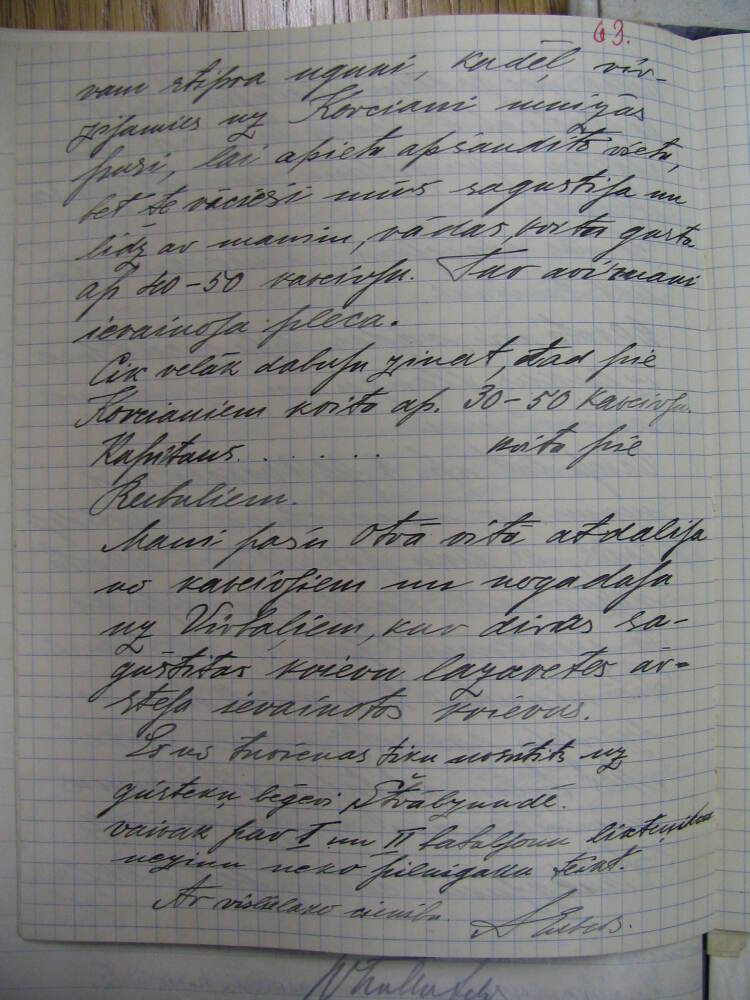 63.
vam stipra uguni, kadēļ vir-
zijamies uz Korciani muižas
pusi, lai apietu apšaudīto vietu,
bet te vācieši mūs sagustija un
lidz ar manim, rādas, krita gusta
ap 40-50 kareivju. Tur arī mani
ievainoja pleca.
Cik velāk dabuju zinat, tad pie
Korcianiem krita ap. 30-50 kareivju.
Kapitans . . . . . . krita pie
Mani pašu otrā rītā atdalija
no kareivjiem un nogadaja
uz Virbaļiem, kur divas sa-
gūstitas krievu lazaretes ār-
stēja ievainotos krievus.
Es no turienas tiku nosūtīts uz
gūstekņu lēģeri Štrālzundē.
Vairak par I un II bataljonu likteņiem
nezinu neko pilnigaku teikt.
Ar vislielako cieņību